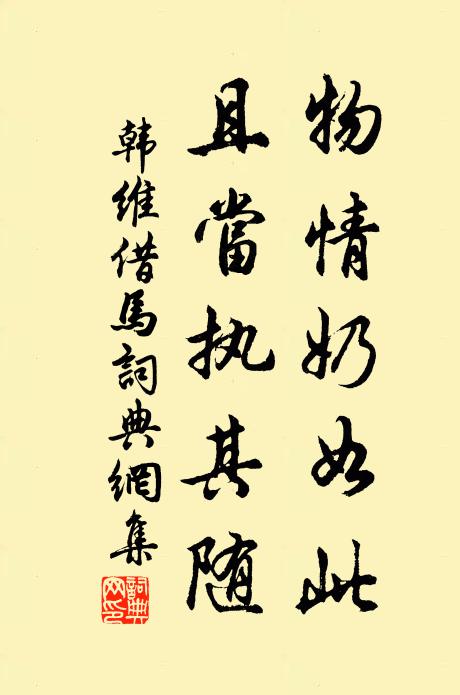 物情奶如此
且當执其随
韩维借馬詞典網集
詞典网印